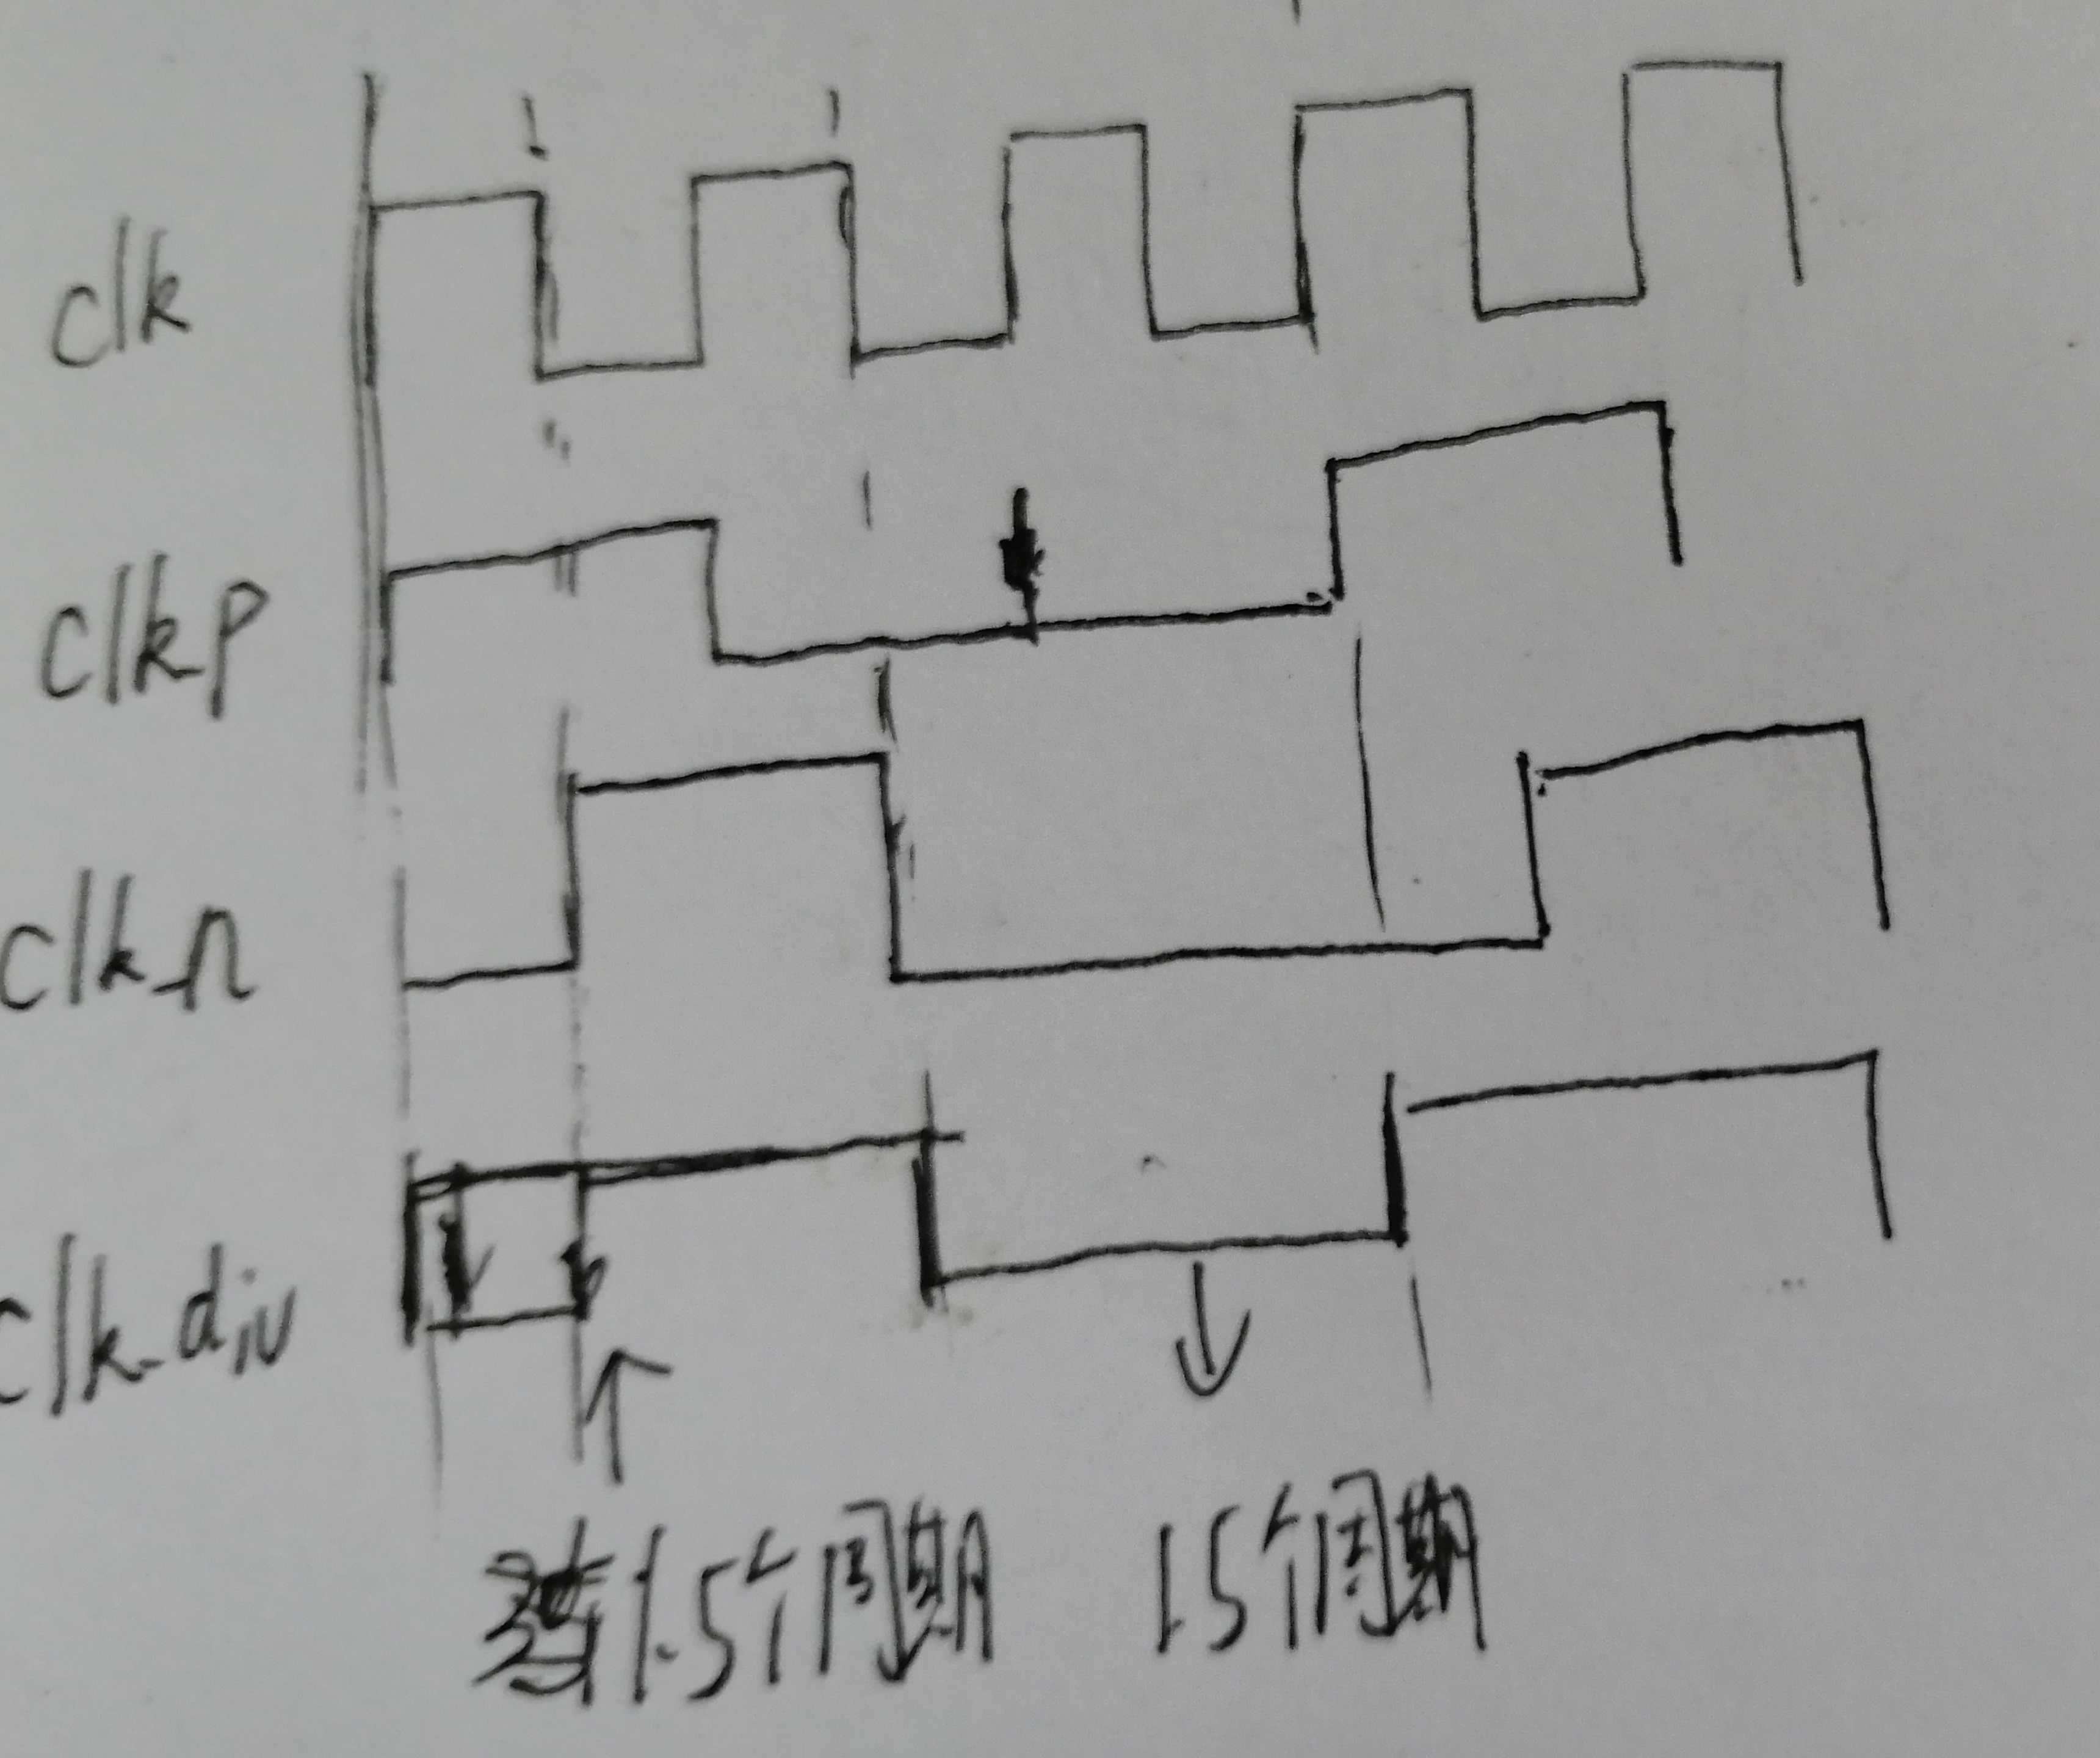 clk
clkp
clk_n
clk_div
1.5个周期 1.5个周期